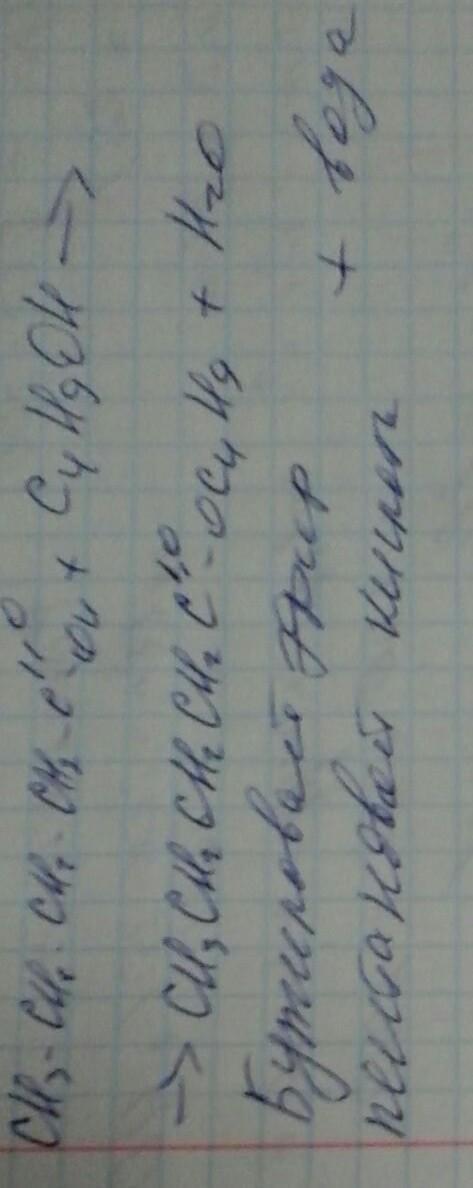 CH3-CH2-CH2-CH2-C=O-OH + C4H9OH →
→ CH3CH2CH2CH2C=O-OC4H9 + H2O
Бутиловый эфир
пентановой кислоты + вода